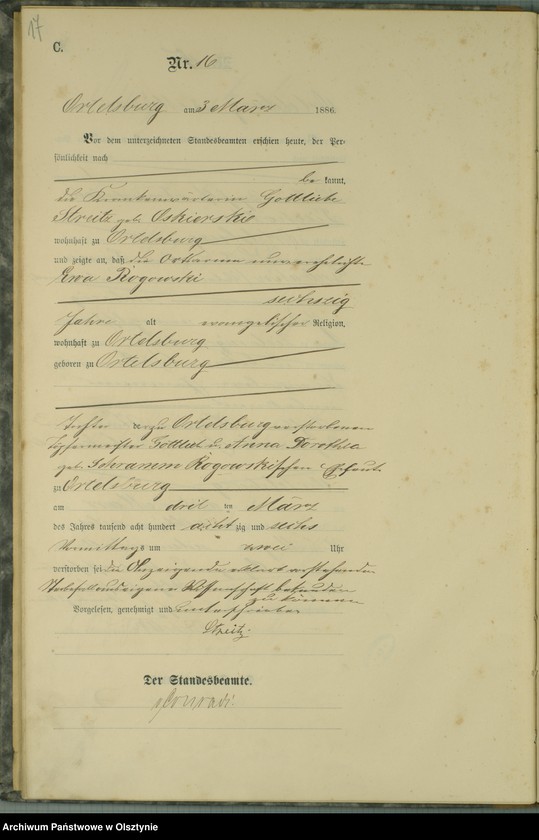 17
C.
Nr. 16
Ortelsburg am 3 März 1886.
Vor dem unterzeichneten Standesbeamten erschien heute, der Per-
sönlichkeit nach
be kannt,
die Krankenwärterin Gottliebe
Streitz geb.
wohnhaft zu Ortelsburg
und zeigte an, daß die Ortsarme unverehelichte
Ewa Rogowski
sechszig
Jahre alt evangelischer Religion,
wohnhaft zu Ortelsburg
geboren zu Ortelsburg
Tochter der zu Ortelsburg verstorbenen
Töpfermeister Gottlieb u. Anna Dorothea
geb. Rogowskischen Eheleute
zu Ortelsburg
am drei ten März
des Jahres tausend acht hundert acht zig und sechs
Vormittags um Uhr
verstorben sei die Anzeigende erklärt vorstehenden
Sterbefall aus eigener Wissenschaft bekunden
zu können
Vorgelesen, genehmigt und unterschrieben
Streitz
Der Standesbeamte.
Conradi.
Archiwum Państwowe w Olsztynie